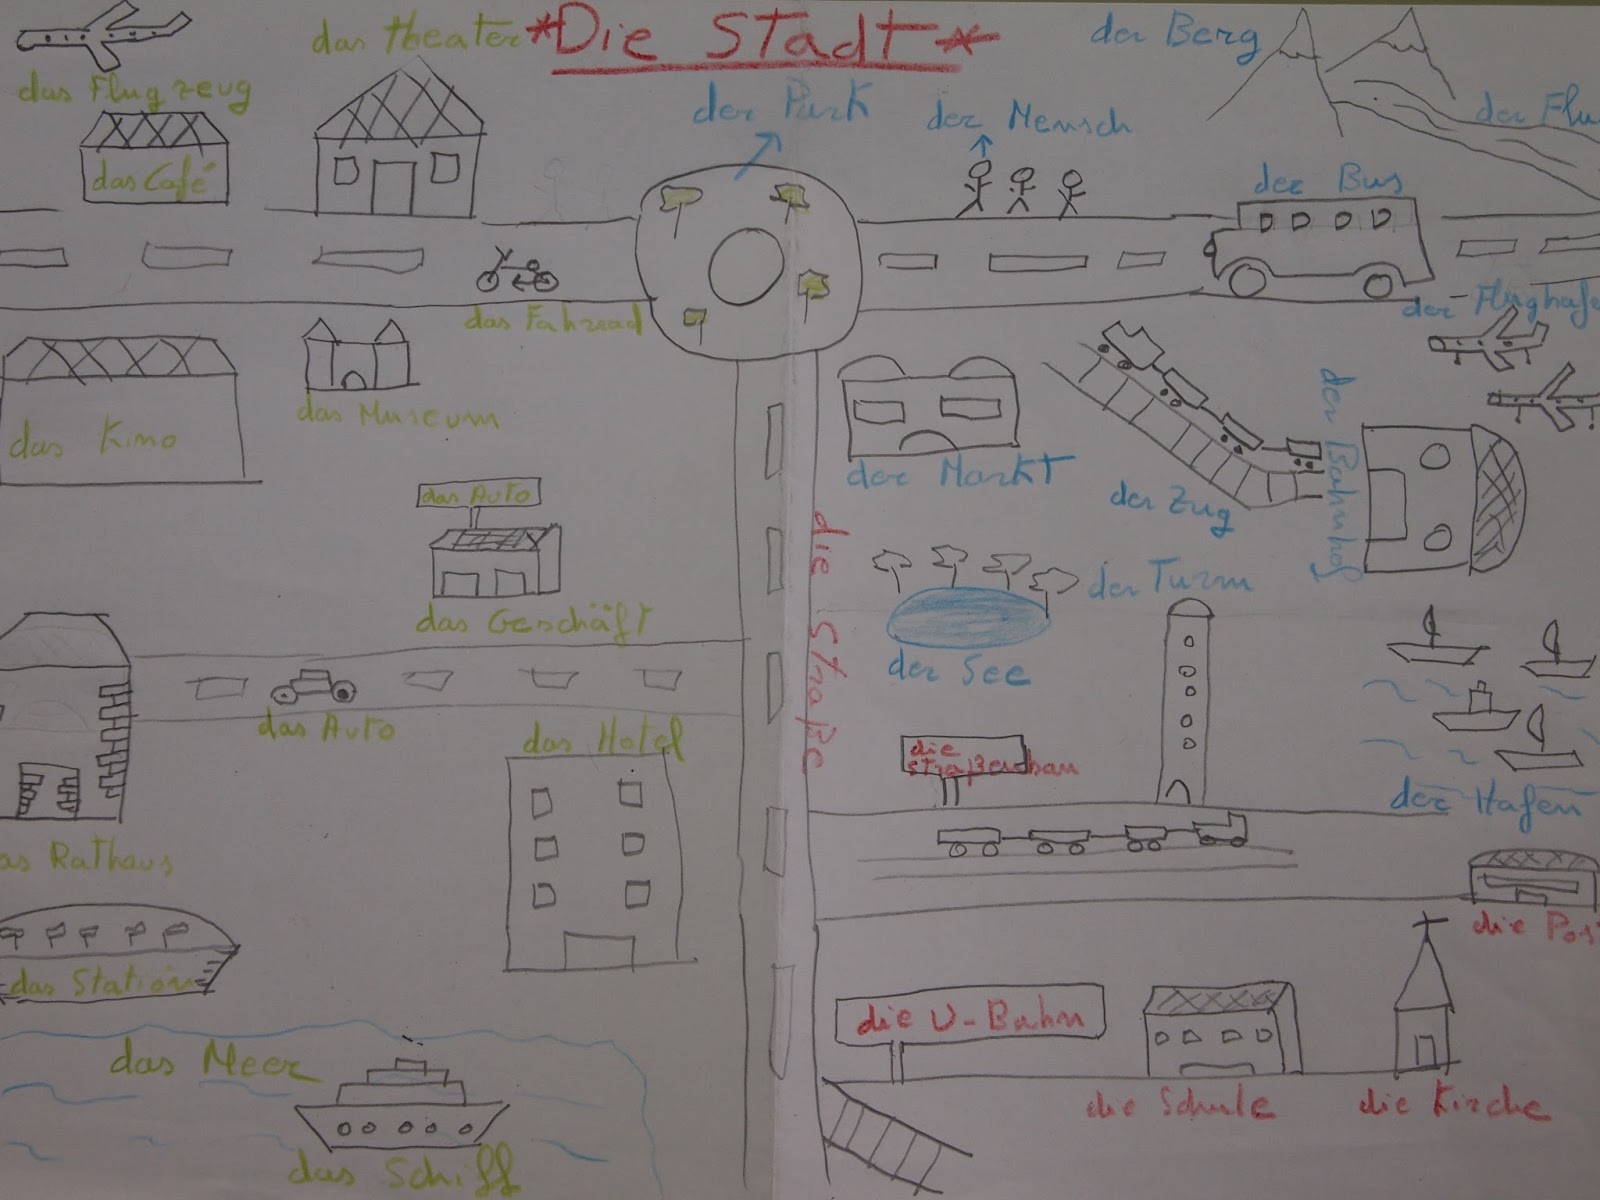 *Die Stadt*
das theater
der Berg
das Flugzeug
der Park
der Mensch
der Flu
das Café
der Bus
das Fahrrad
der Flughafe
das Museum
das Kino
der Markt
der Zug
der Bahnhof
das Auto
die Straße
das Geschäft
der Turm
der See
das Auto
das Hotel
die
straßenbahn
der Hafen
as Rathaus
die Pos
das Station
die U-Bahn
das Meer
die Schule
die Kirche
das Schiff